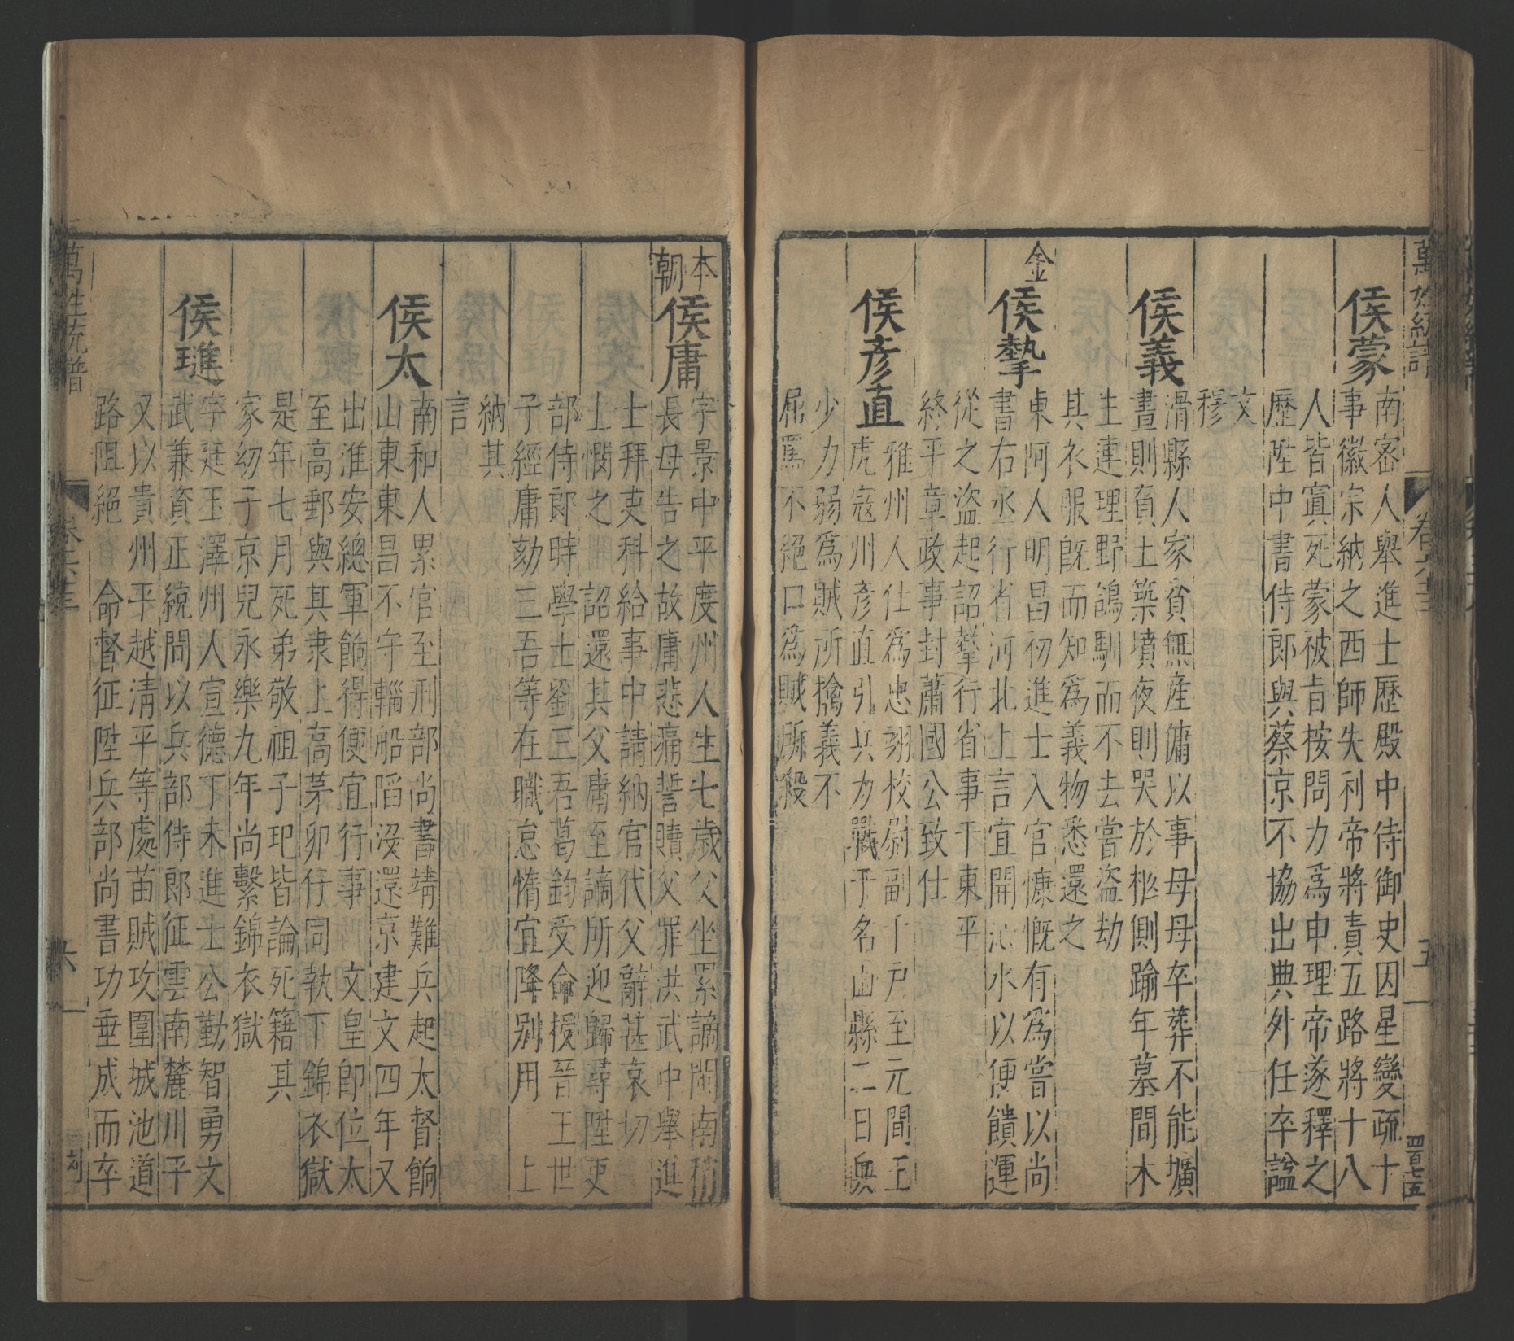 侯蒙
南密人舉進士歷殿中侍御史因星變疏十
事徽宗納之西師失利帝將責五路將十八
人皆寘死蒙被旨按問力爲申理帝遂釋之
歷陞中書侍郎與蔡京不協出典外任卒諡
文
穆
侯義
滑縣人家貧無産傭以事母母卒葬不能壙
晝則負土築墳夜則哭於柩側踰年墓間木
生連理野鴿馴而不去嘗盗劫
其衣服旣而知爲義物悉還之
金
侯摯
東阿人明昌初進士入官慷慨有爲嘗以尚
書右丞行省河北上言宜開沁水以便饋運
從之盗起詔摯行省事于東平
終平章政事封蕭國公致仕
侯彥直
雅州人仕爲忠翊校尉副千戸至元間王
虎寇州彥直引兵力戰于名山縣二日兵
少力弱爲賊所擒義不
屈罵不絕口爲賊所殺
萬姓統譜
卷六十三
五
四百七五
本
朝
侯庸
字景中平度州人生七歲父坐累謫閩南稍
長母告之故庸悲痛誓贖父罪洪武中舉進
士拜吏科給事中請納官代父辭甚哀切
上憫之 詔還其父庸至謫所迎歸尋陞吏
部侍郎時學士劉三吾葛鈞受命授晉王世
子經庸劾三吾等在職怠惰宜降别用 上
納其
言
侯太
南和人累官至刑部尚書靖難兵起太督餉
山東東昌不守輜船陷沒還京建文四年又
出淮安總軍餉得便宜行事 文皇卽位太
至高郵與其隶上高茅卯仔同執下錦衣獄
是年七月死弟敬祖子玘皆論死籍其
家幼子京兒永樂九年尚繫錦衣獄
侯璡
字廷玉澤州人宣德丁未進士公勤智勇文
武兼資正統間以兵部侍郎征雲南麓川平
又以貴州平越清平等處苗賊攻圍城池道
路阻絕 命督征陞兵部尚書功垂成而卒
萬姓統譜
卷六十三
六